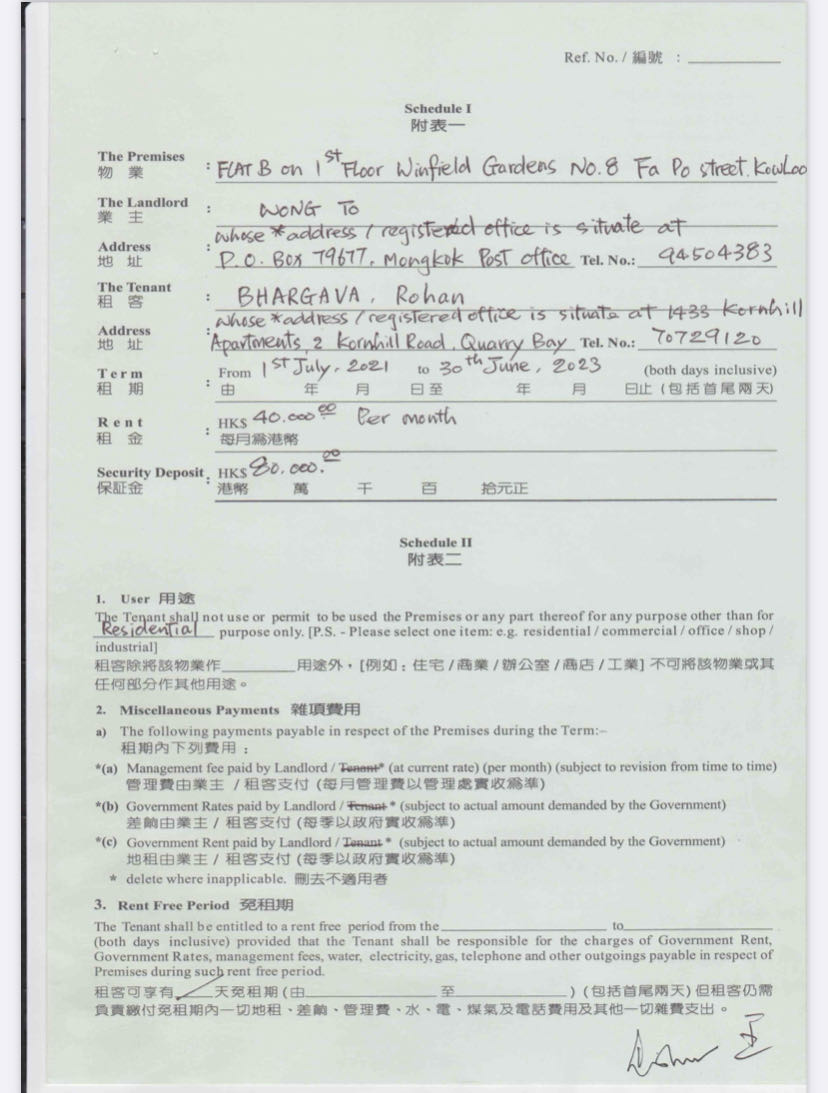 Ref. No. / 編號 : 
Schedule I
附表一
The Premises : FLAT B on 1st Floor Winfield Gardens No. 8 Fa Po street. KowLoo
物業
The Landlord : WONG To
業主
whose *address / registered office is situate at
Address : P.O. Box 79677, Mongkok Post office Tel. No.: 94504383
地址
The Tenant : BHARGAVA, Rohan
租客
whose *address / registered office is situate at 1433 Kornhill
Address : Apartments, 2 Kornhill Road, Quarry Bay Tel. No.: 70729120
地址
Term : From 1st July, 2021 to 30th June, 2023 (both days inclusive)
租期 由 年 月 日至 年 月 日止 (包括首尾兩天)
Rent : HK$ 40.000.00 Per month
租金 每月為港幣
Security Deposit : HK$ 80.000.00
保証金 港幣 萬 千 百 拾元正
Schedule II
附表二
1. User 用途
The Tenant shall not use or permit to be used the Premises or any part thereof for any purpose other than for
Residential purpose only. [P.S. - Please select one item: e.g. residential / commercial / office / shop /
industrial]
租客除將該物業作________用途外，[例如：住宅 / 商業 / 辦公室 / 商店 / 工業] 不可將該物業或其
任何部分作其他用途。
2. Miscellaneous Payments 雜項費用
a) The following payments payable in respect of the Premises during the Term:–
租期內下列費用：
*(a) Management fee paid by Landlord / Tenant* (at current rate) (per month) (subject to revision from time to time)
管理費由業主 / 租客支付 (每月管理費以管理處實收為準)
*(b) Government Rates paid by Landlord / Tenant * (subject to actual amount demanded by the Government)
差餉由業主 / 租客支付 (每季以政府實收為準)
*(c) Government Rent paid by Landlord / Tenant * (subject to actual amount demanded by the Government)
地租由業主 / 租客支付 (每季以政府實收為準)
* delete where inapplicable. 刪去不適用者
3. Rent Free Period 免租期
The Tenant shall be entitled to a rent free period from the ________ to ________
(both days inclusive) provided that the Tenant shall be responsible for the charges of Government Rent,
Government Rates, management fees, water, electricity, gas, telephone and other outgoings payable in respect of
Premises during such rent free period.
租客可享有____天免租期 (由________至________) (包括首尾兩天) 但租客仍需
負責繳付免租期內一切地租、差餉、管理費、水、電、煤氣及電話費用及其他一切雜費支出。